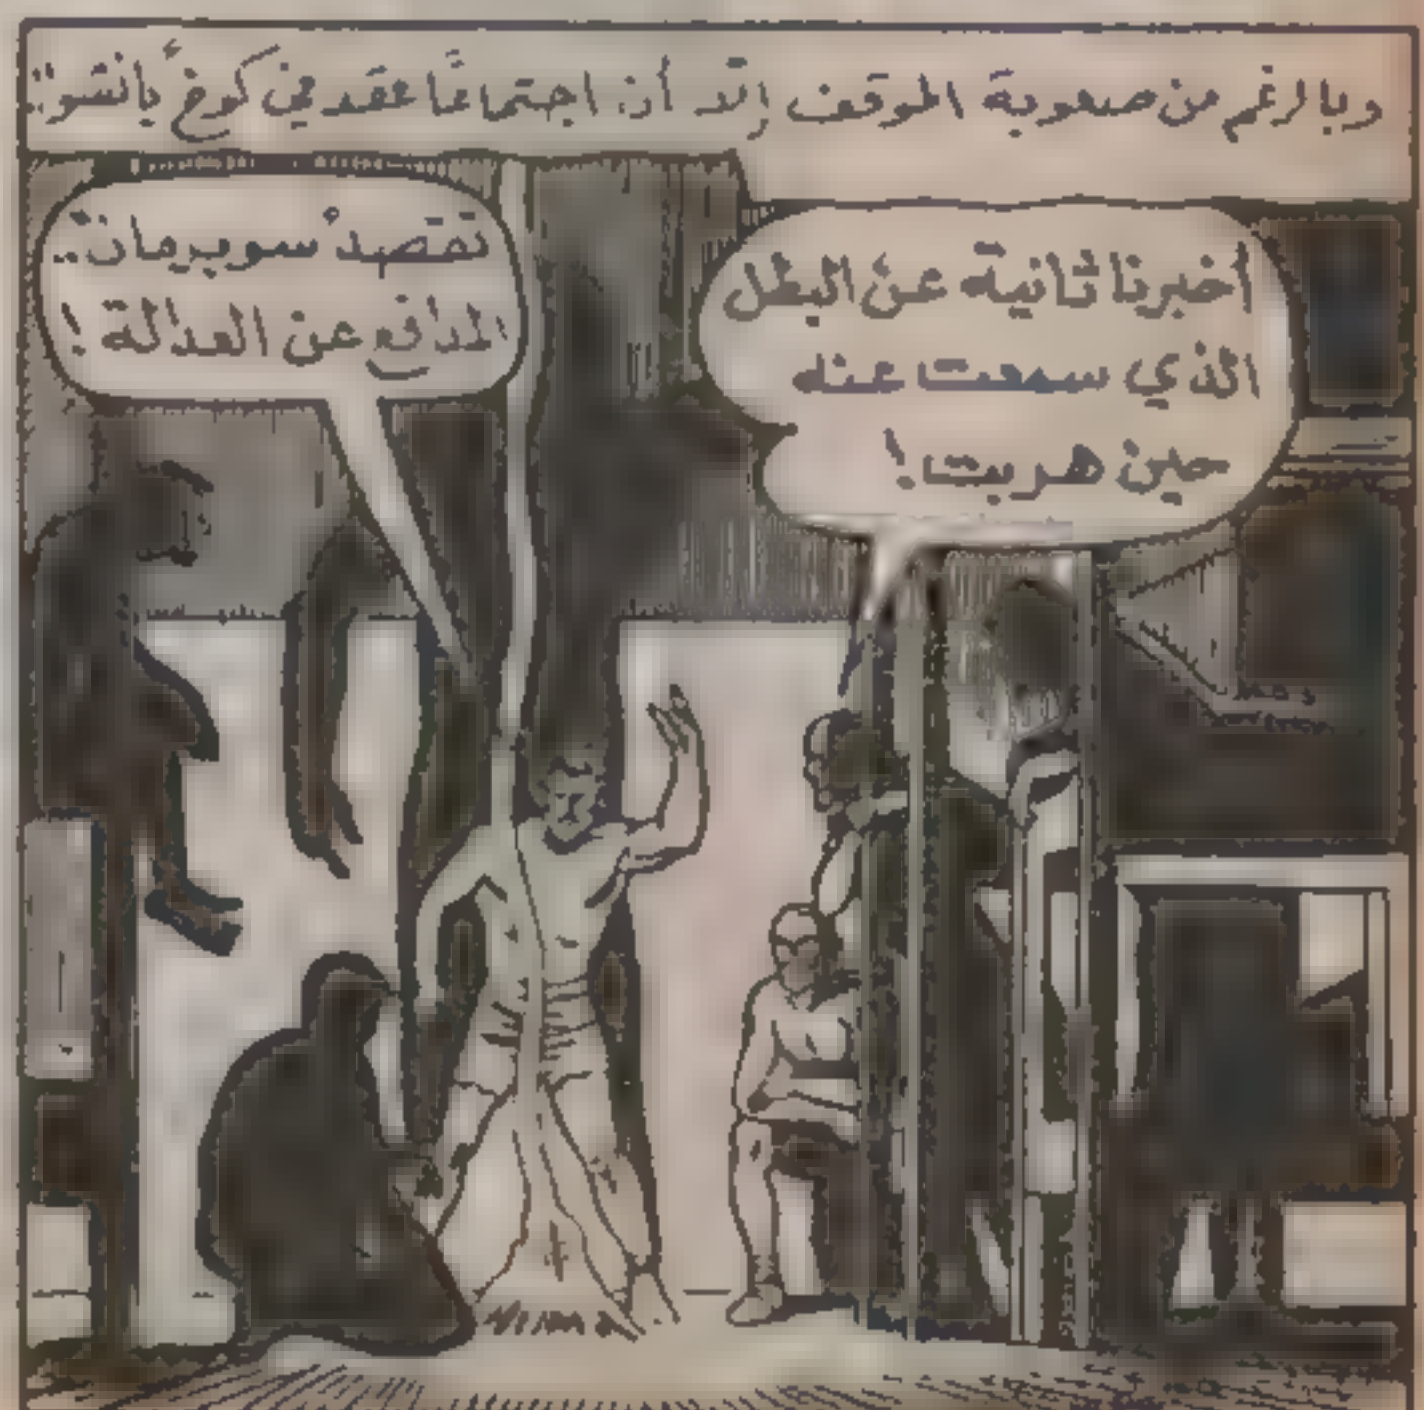 وبالرغم من صعوبة الموقف إلا أن اجتماعًا عقد في كوخ بانشو..
أخبرنا ثانية عن البطل
الذي سمعت عنه
حين هربت!
تقصد سوبرمان..
المدافع عن العدالة!